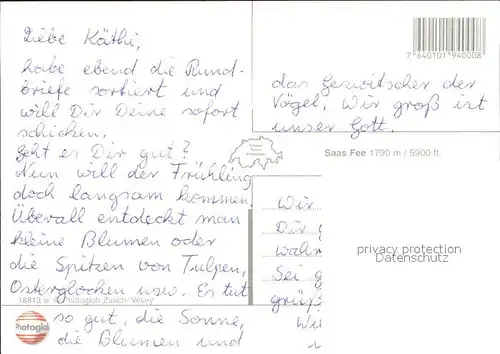 Liebe Käthi,
habe ebend die Rund-
briefe sortiert und
will Dir Deine sofort
schicken.
Geht es Dir gut?
Nun will der Frühling
doch langsam kommen.
Überall entdeckt man
kleine Blumen oder
die Spitzen von Tulpen,
Osterglocken usw. Es tut
18813 w © Photoglob Zürich/Vevey
Photoglob
so gut, die Sonne,
die Blumen und
7 640101 940008
das Gezwitscher der
Vögel. Wir groß ist
unser Gott.
Saas Fee 1790 m / 5900 ft.
Wir
Dir
wahr
privacy protection
Datenschutz
Sei g
grüß